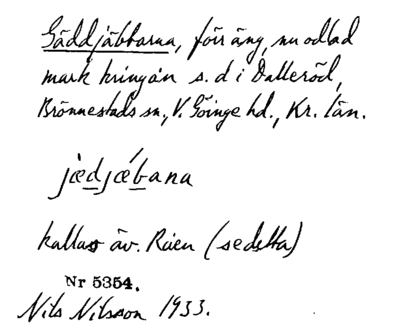 Gäddjäbbarna, förr äng, nu odlad
mark kring ån s. d i Dalleröd,
Brönnestads sn., V. Göinge hd., Kr. län.
jæ̀djǽbana
kallas äv. Råen (se detta)
Nr 5354.
Nils Nilsson 1933.